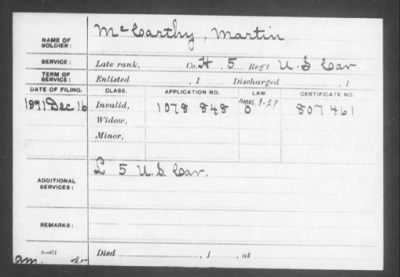 NAME OF SOLDIER: McCarthy, Martin
SERVICE: Late rank, Co. H, 5 Reg't U.S. Cav
TERM OF SERVICE: Enlisted , 1 Discharged , 1
DATE OF FILING. CLASS. APPLICATION NO. LAW. CERTIFICATE NO.
1891 Dec 16 Invalid, 1078 848 807 461
Widow,
Minor,
ADDITIONAL SERVICES: L 5 U.S. Cav.
REMARKS:
Died , 1 , at